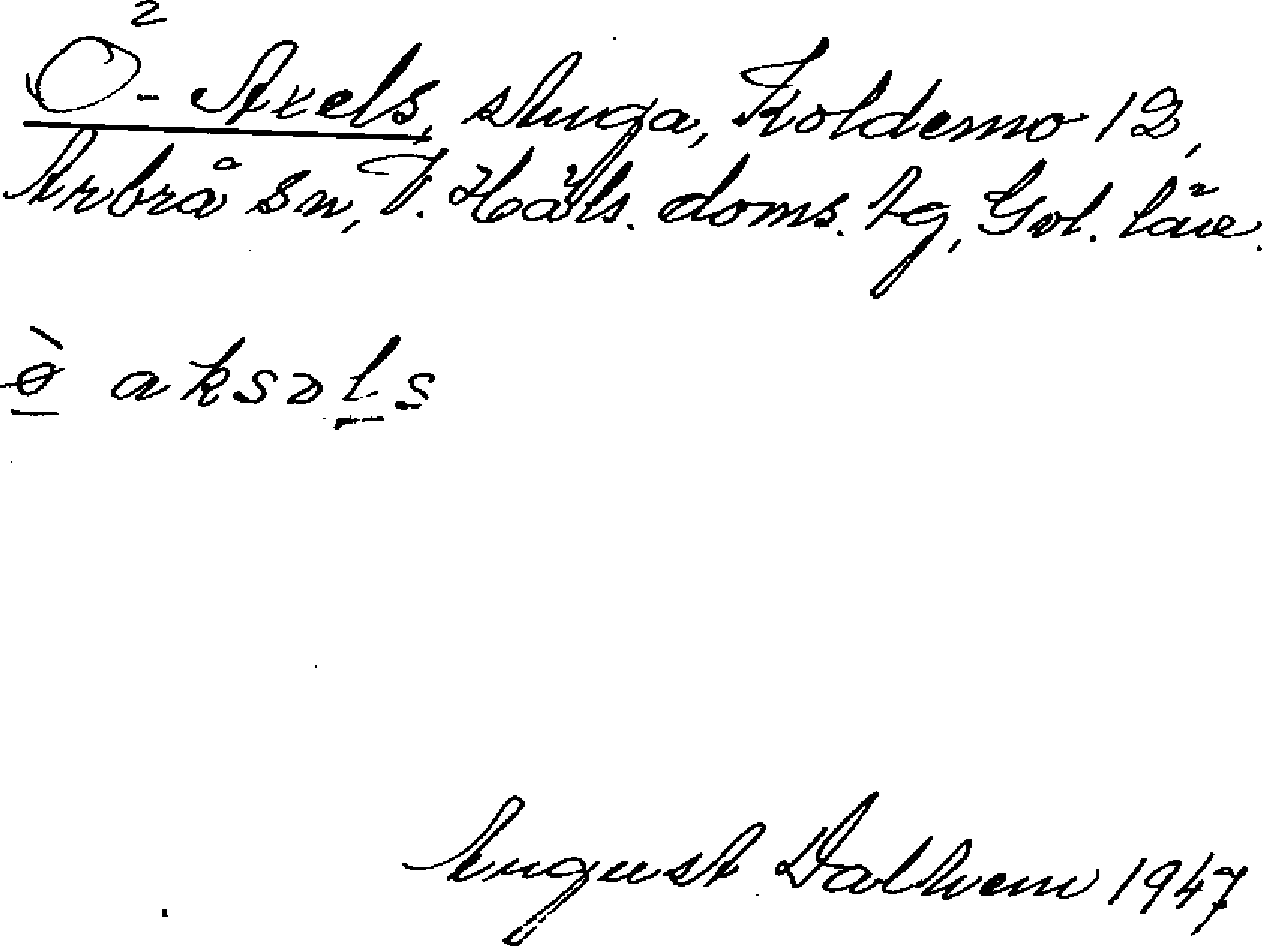 Ö-Axels, stuga, Koldemo 12,
Arbrå sn, V. Häls. doms. tg, Gvl. län.
ò aksəls
August Dalhem 1947